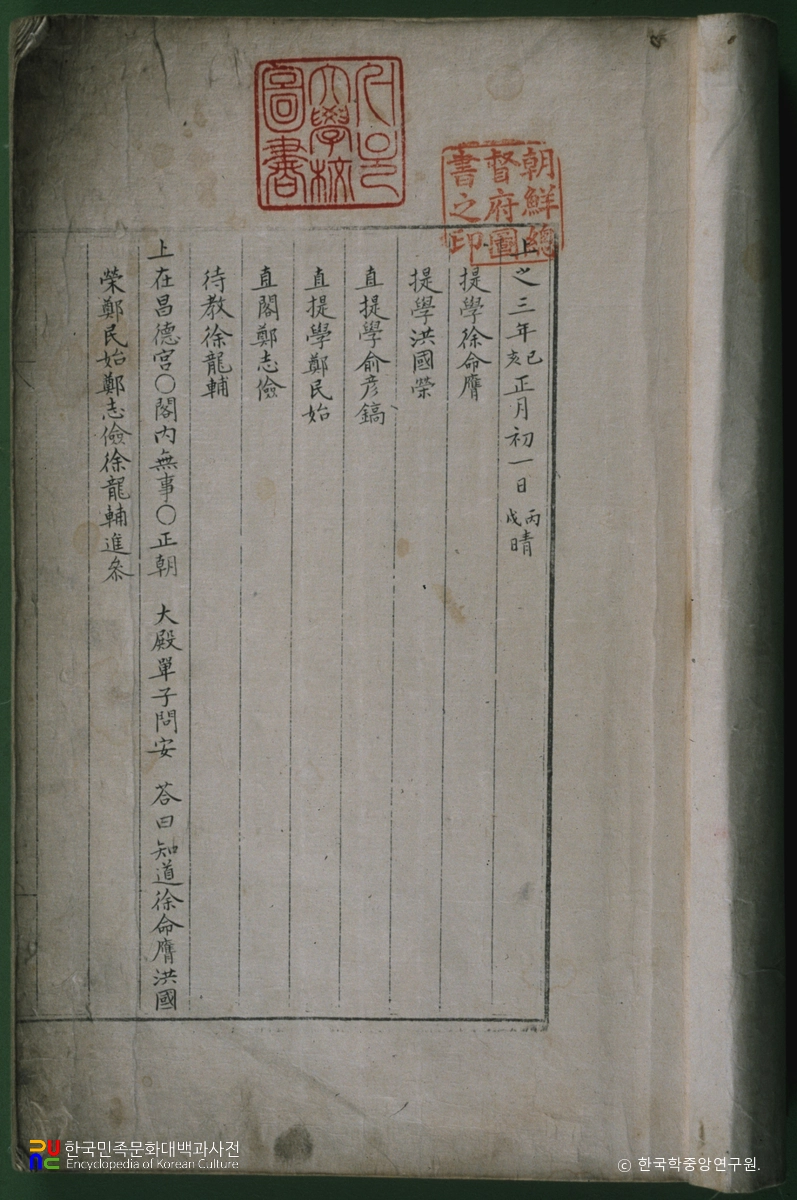 서울
大學校
圖書
朝鮮總
督府圖
書之印
上之三年己亥正月初一日丙戌晴
提學徐命膺
提學洪國榮
直提學俞彦鎬
直提學鄭民始
直閣鄭志儉
待敎徐龍輔
上在昌德宮〇閣內無事〇正朝 大殿單子問安 答曰知道徐命膺洪國
榮鄭民始鄭志儉徐龍輔進參
한국민족문화대백과사전
Encyclopedia of Korean Culture
ⓒ 한국학중앙연구원.